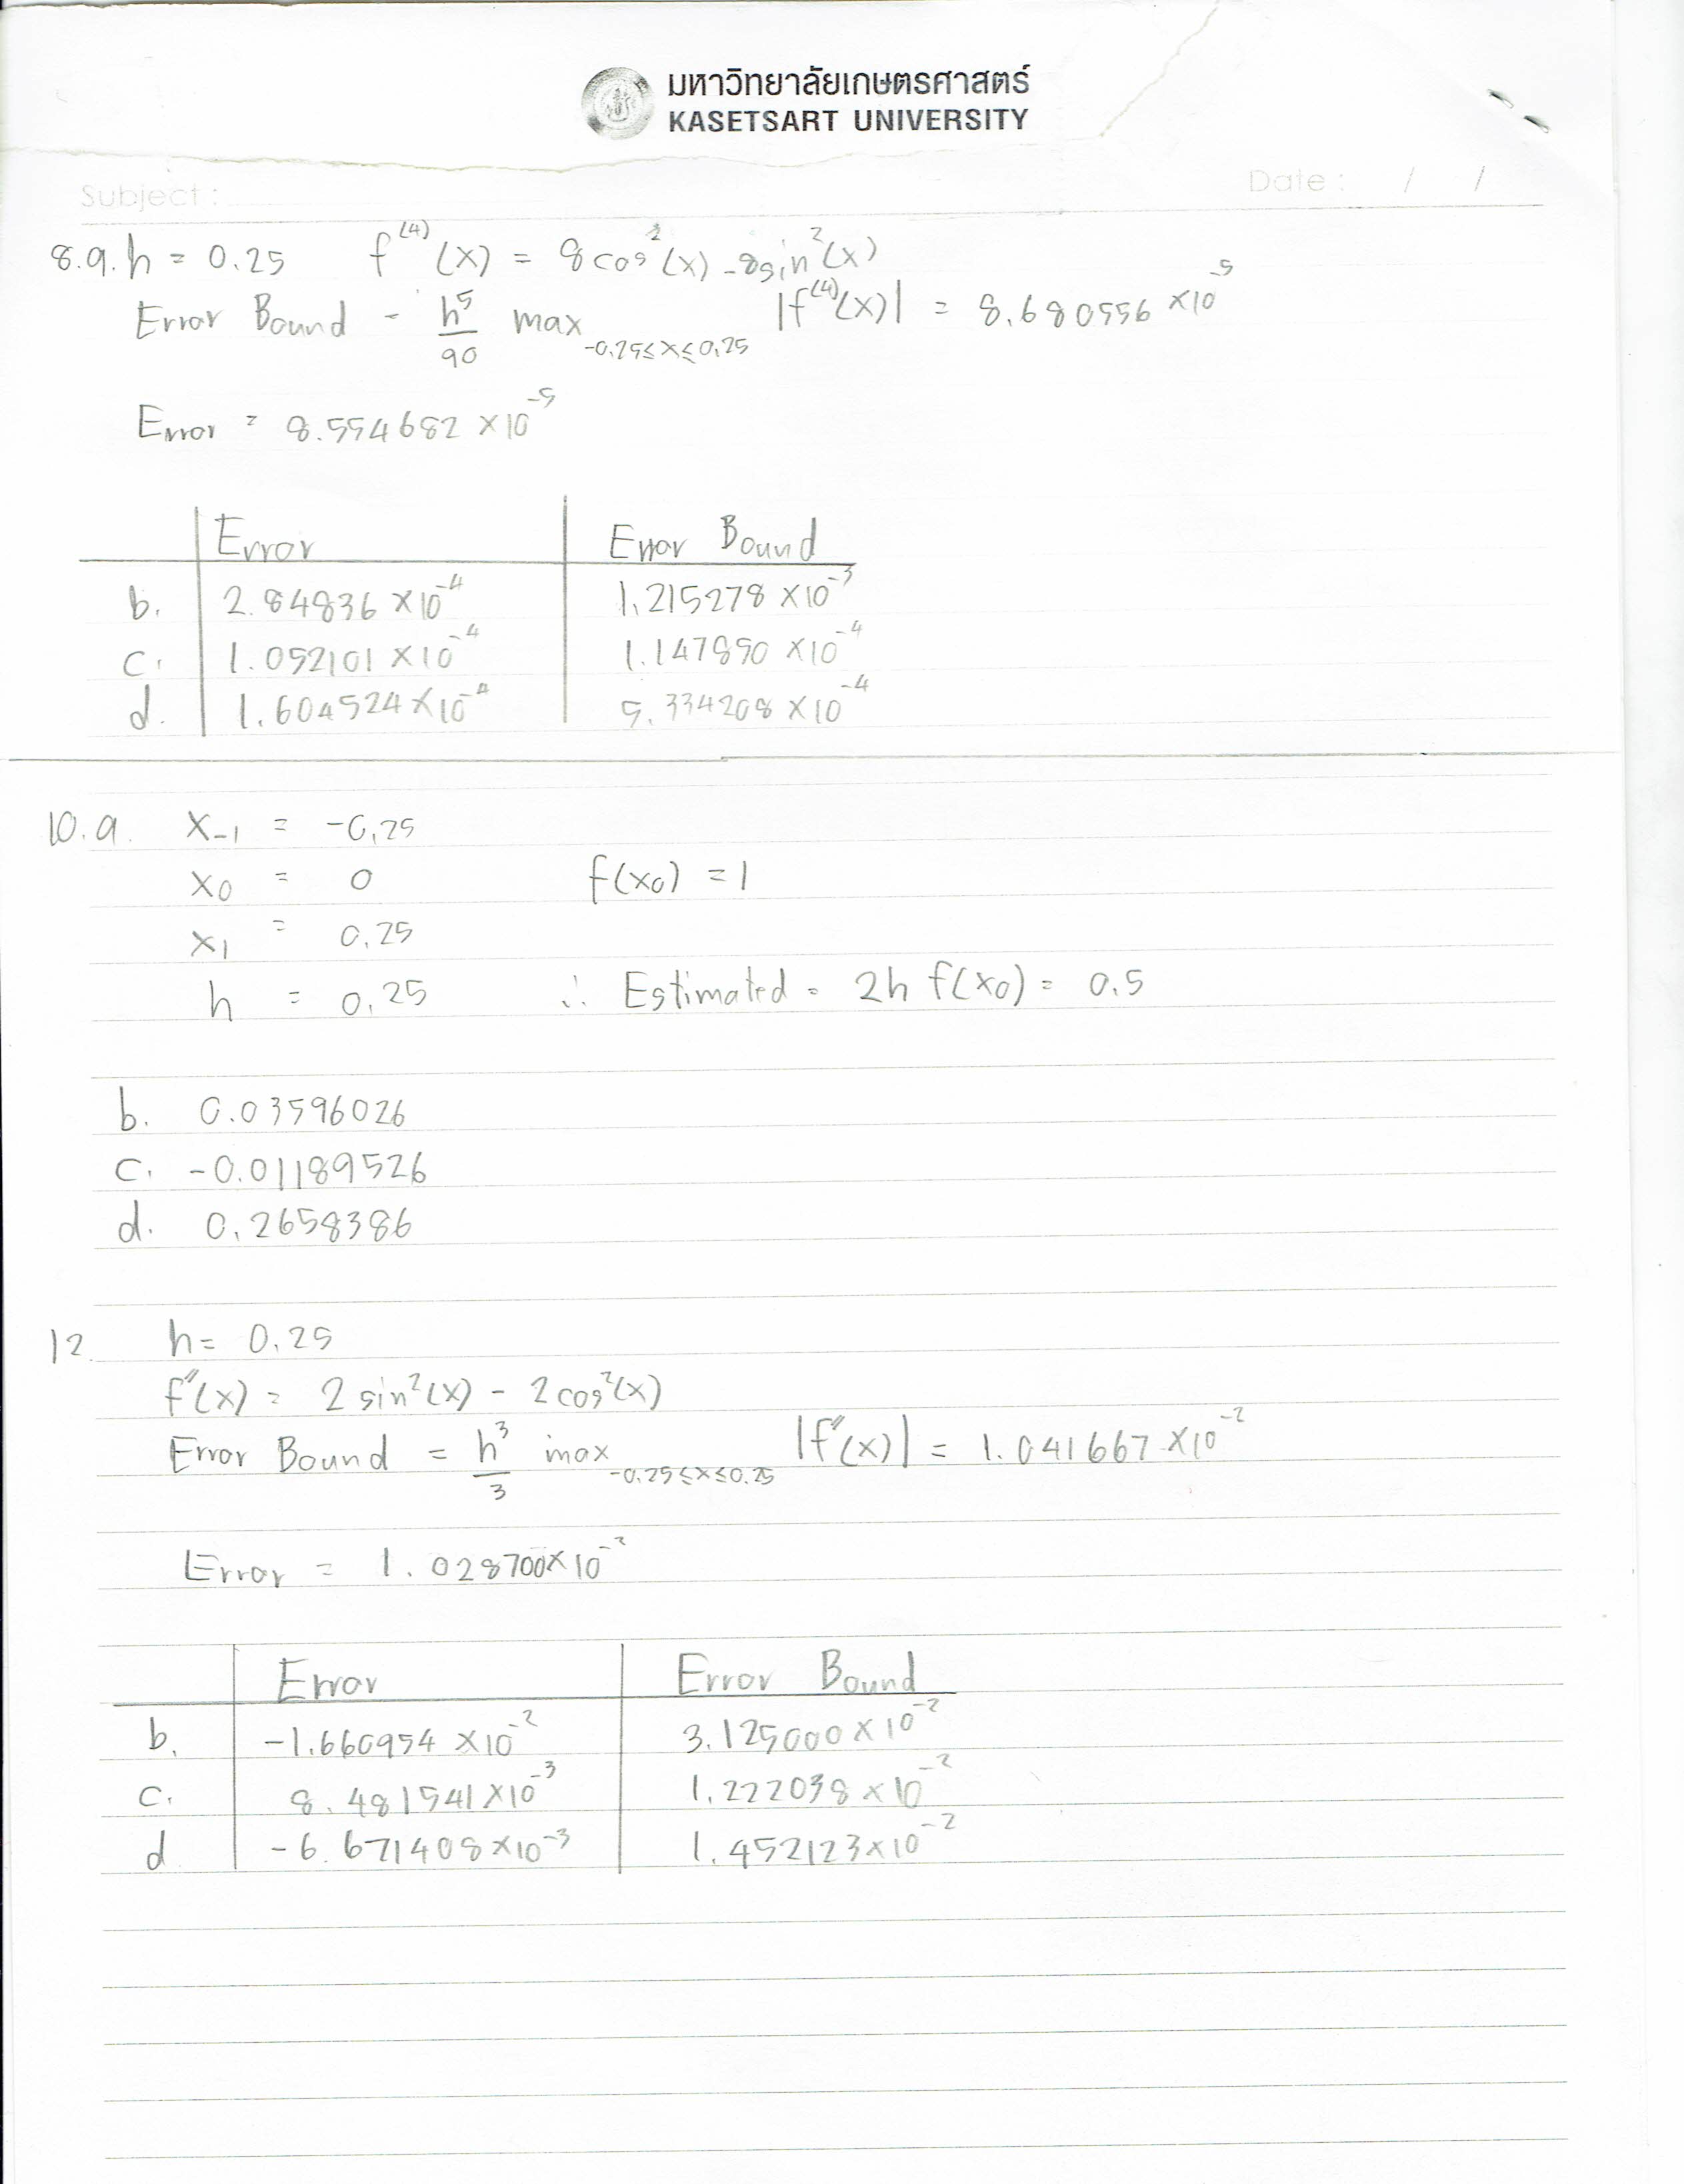 มหาวิทยาลัยเกษตรศาสตร์
KASETSART UNIVERSITY
Subject :
Date : / /
8.a. h = 0.25 f⁽⁴⁾(x) = 8cos²(x) - 8sin²(x)
Error Bound = h⁵/90 max -0.25≤x≤0.25 |f⁽⁴⁾(x)| = 8.680556 × 10⁻⁵
Error = 8.554682 × 10⁻⁵
Error Error Bound
b. 2.84836 × 10⁻⁴ 1.215278 × 10⁻³
c. 1.052101 × 10⁻⁴ 1.147850 × 10⁻⁴
d. 1.604524 × 10⁻⁴ 5.334208 × 10⁻⁴
10.a. x₋₁ = -0.25
x₀ = 0 f(x₀) = 1
x₁ = 0.25
h = 0.25 ∴ Estimated = 2h f(x₀) = 0.5
b. 0.03596026
c. -0.01189526
d. 0.2658386
12. h = 0.25
f″(x) = 2 sin²(x) - 2cos²(x)
Error Bound = h³/3 max -0.25≤x≤0.25 |f″(x)| = 1.041667 × 10⁻²
Error = 1.028700 × 10⁻²
Error Error Bound
b. -1.660954 × 10⁻² 3.125000 × 10⁻²
c. 8.481541 × 10⁻³ 1.222038 × 10⁻²
d -6.671408 × 10⁻³ 1.452123 × 10⁻²